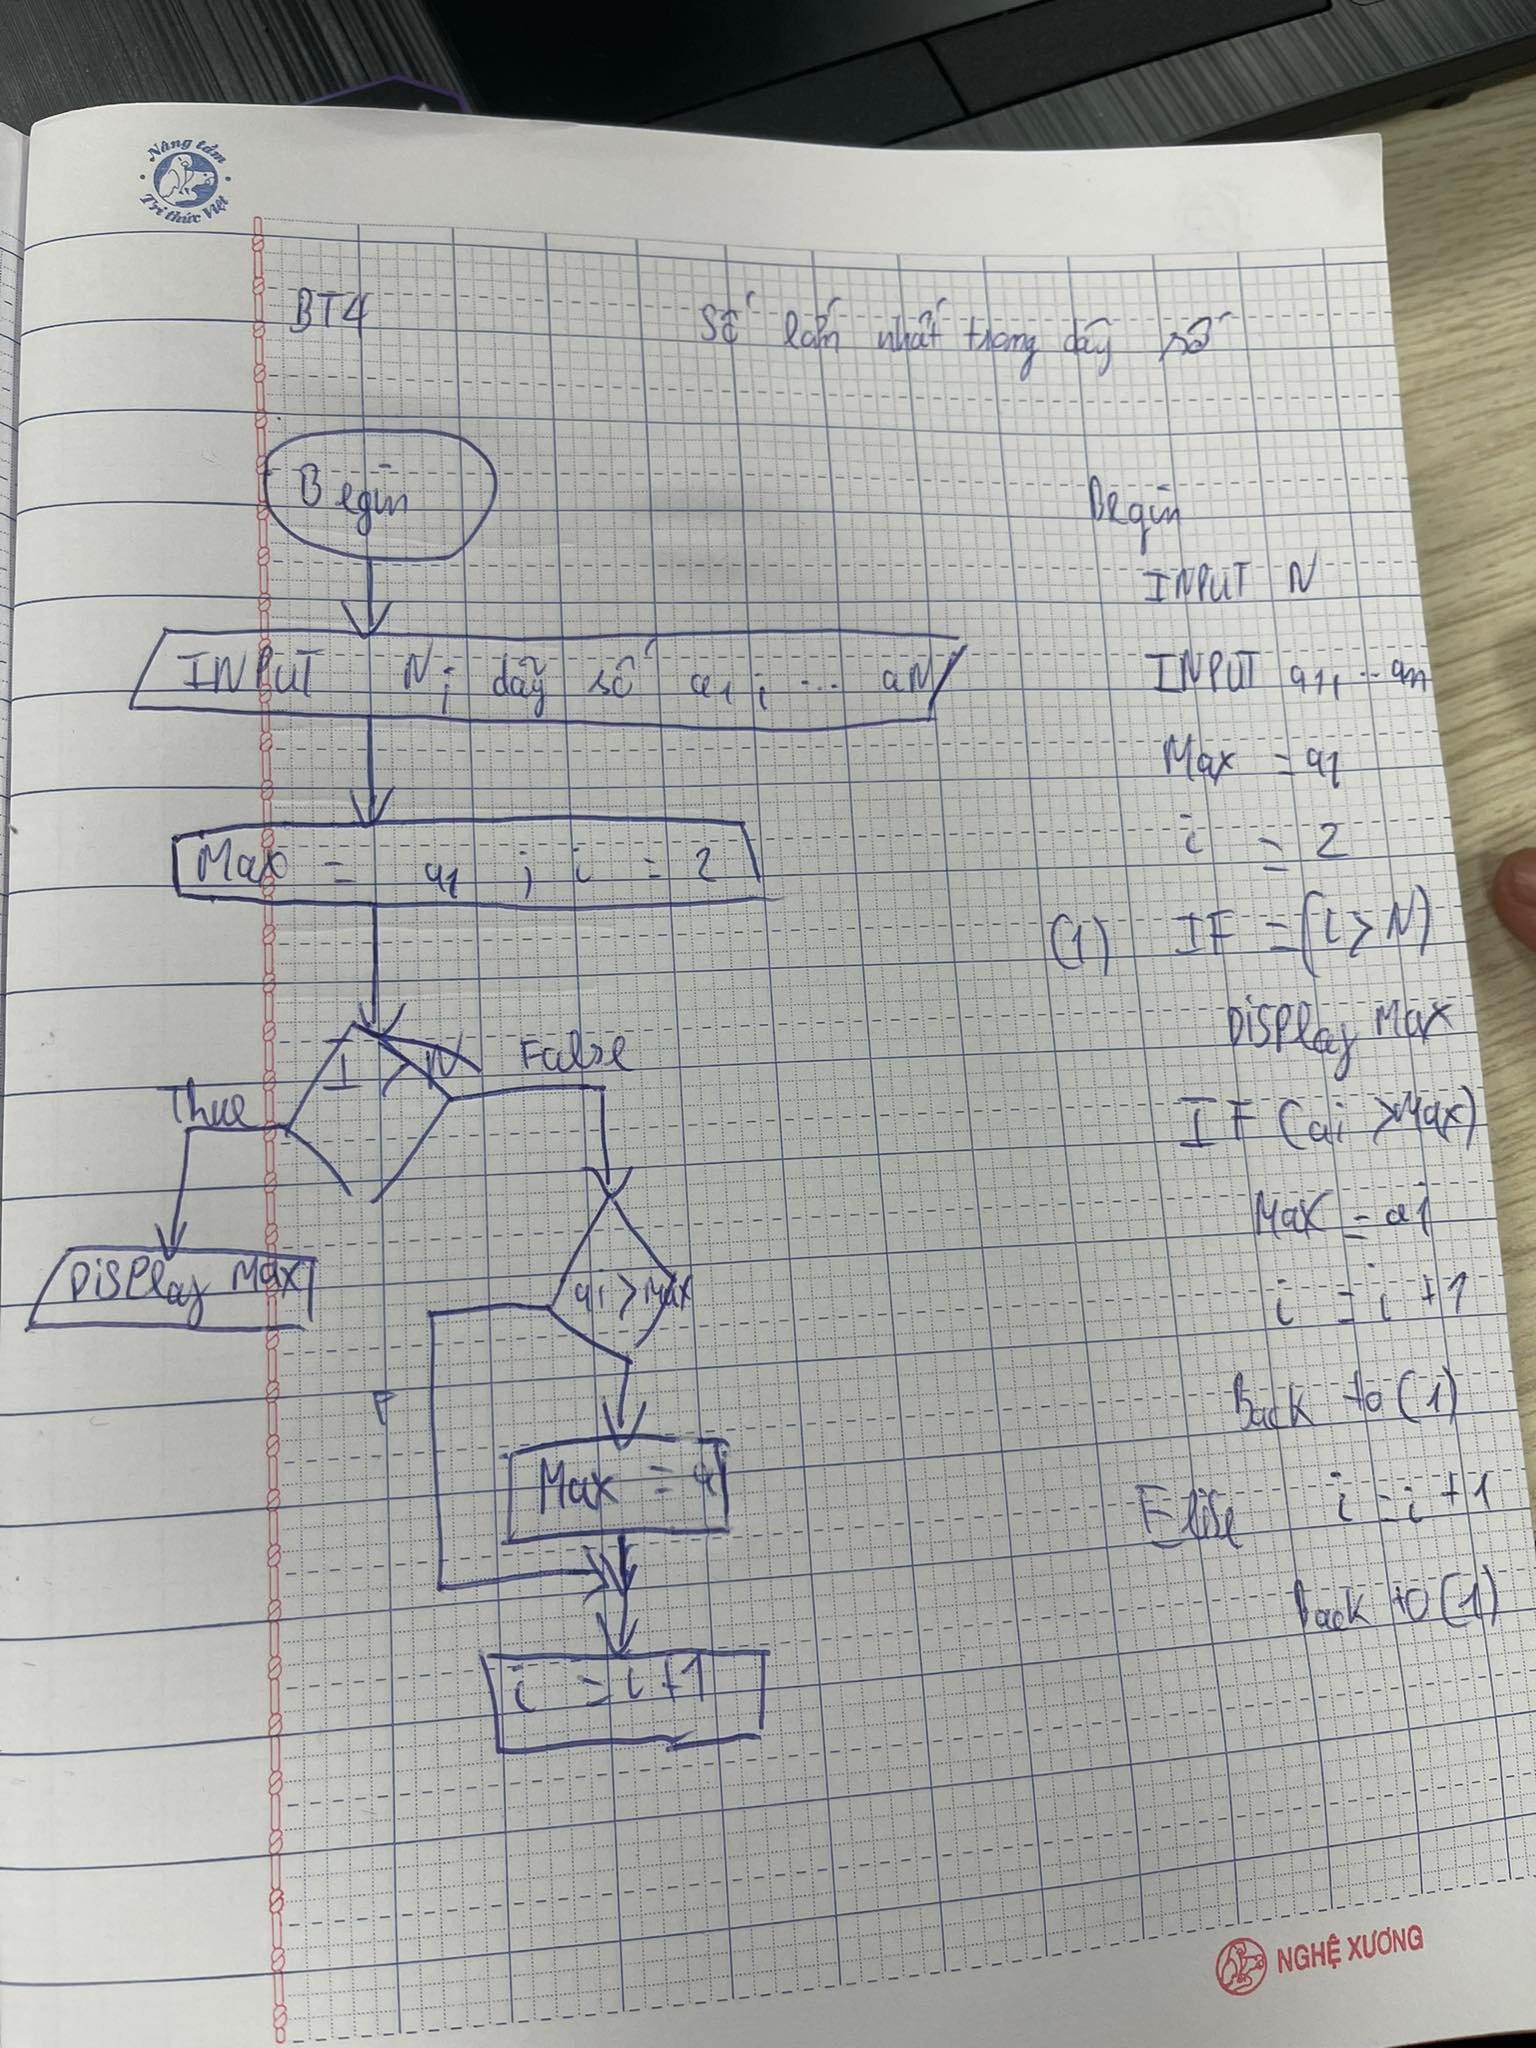 Nâng tầm
Tri thức Việt
BT4
Số lớn nhất trong dãy số
Begin
INPUT N; dãy số a1; ... aN
Max = a1 ; i = 2
I > N
True
False
Display Max
ai > Max
F
Max = ai
i = i + 1
Begin
INPUT N
INPUT a1, ... an
Max = a1
i = 2
(1) IF = (i > N)
Display Max
IF (ai > Max)
Max = ai
i = i + 1
Back to (1)
Else i = i + 1
Back to (1)
NGHỆ XƯƠNG